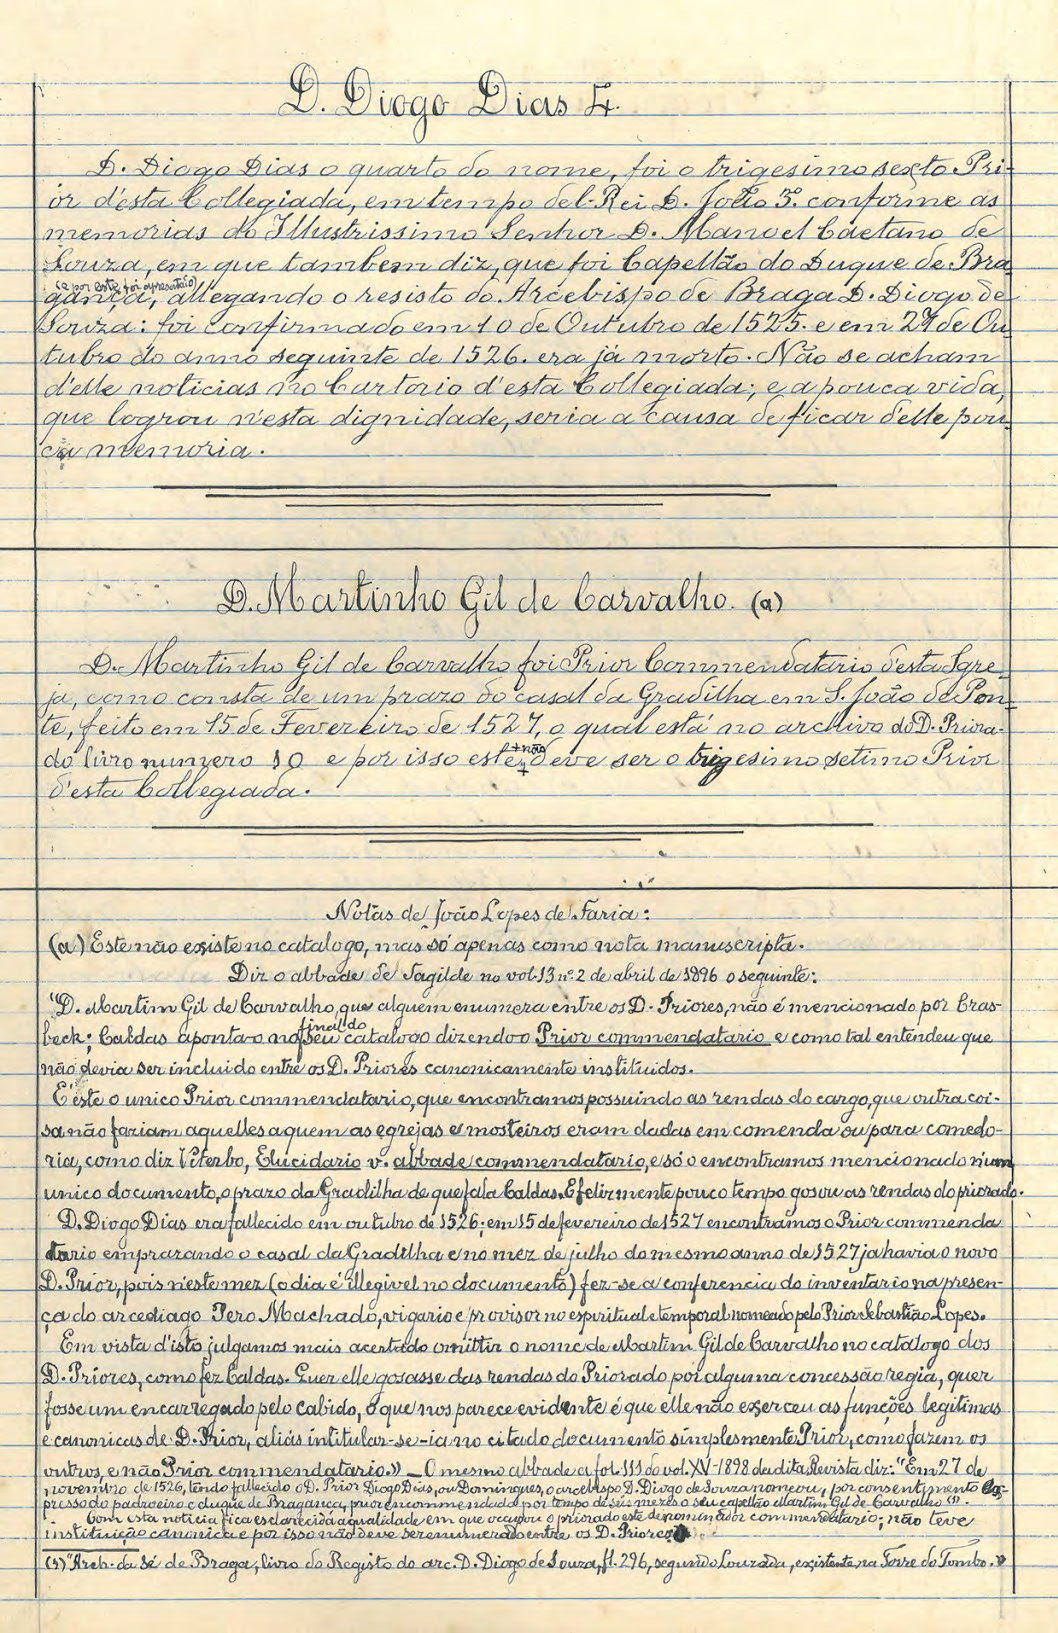 D. Diogo Dias 4.
D. Diogo Dias o quarto do nome, foi o trigesimo sexto Pri-
or d'esta Collegiada, em tempo del-Rei D. João 3.º conforme as
memorias do Illustrissimo Senhor D. Manoel Caetano de
Souza, em que tambem diz, que foi Capellão do Duque de Bra
(e por este foi apresentado)
gança, allegando o resisto do Arcebispo de Braga D. Diogo de
Souza: foi confirmado em 10 de Outubro de 1525. e em 27 de Ou
tubro do anno seguinte de 1526. era já morto. Não se acham
d'elle noticias no Cartorio d'esta Collegiada; e a pouca vida,
que logrou n'esta dignidade, seria a causa de ficar d'elle pou-
ca memoria.
D. Martinho Gil de Carvalho. (a)
D. Martinho Gil de Carvalho foi Prior Commendatario d'esta Igre-
ja, como consta de um prazo do casal da Gradilha em S. João de Pon-
te, feito em 15 de Fevereiro de 1527, o qual está no archivo do D. Priora-
+ não
do livro numero 10 e por isso este + deve ser o trigesimo setimo Prior
d'esta Collegiada.
Notas de João Lopes de Faria:
(a) Este não existe no catalogo, mas só apenas como nota manuscripta.
Diz o abbade de Tagilde no vol. 13 nº 2 de abril de 1896 o seguinte:
"D. Martim Gil de Carvalho, que alguem enumera entre os D. Priores, não é mencionado por Cras-
final do
beck; Caldas aponta-o no seu catalogo dizendo-o Prior commendatario e como tal entendeu que
não devia ser incluido entre os D. Priores canonicamente instituidos.
É este o unico Prior commendatario, que encontramos possuindo as rendas do cargo, que outra coi-
sa não faziam aquelles a quem as egrejas e mosteiros eram dadas em comenda ou para comedo-
ria, como diz Viterbo, Elucidario v. abbade commendatario, e só o encontramos mencionado n'um
unico documento, o prazo da Gradilha de que fala Caldas. E felizmente pouco tempo gosou as rendas do priorado.
D. Diogo Dias era fallecido em outubro de 1526; em 15 de fevereiro de 1527 encontramos o Prior commenda
tario emprazando o casal da Gradilha e no mez de julho do mesmo anno de 1527 ja havia o novo
D. Prior, pois n'este mez (o dia é illegivel no documento) fez-se a conferencia do inventario na presen-
ça do arcediago Pero Machado, vigario e provisor no espiritual e temporal nomeado pelo Prior Sebastião Lopes.
Em vista d'isto julgamos mais acertado omittir o nome de Martim Gil de Carvalho no catalogo dos
D. Priores, como fez Caldas. Quer elle gosasse das rendas do Priorado por alguma concessão regia, quer
fosse um encarregado pelo cabido, o que nos parece evidente é que elle não exerceu as funções legitimas
e canonicas de D. Prior, aliás intitular-se-ia no citado documento simplesmente Prior, como fazem os
outros, e não Prior commendatario.» — O mesmo abbade a fol. 111 do vol. XV-1898 da dita Revista diz: "Em 27 de
novembro de 1526, tendo fallecido o D. Prior Diogo Dias, ou Domingues, o arcebispo D. Diogo de Souza nomeou, por consentimento ex-
presso do padroeiro o duque de Bragança, prior encommendado por tempo de seis mezes o seu capellão Martim Gil de Carvalho (1).
Com esta noticia fica esclarecida a qualidade em que occupou o priorado este denominador commendatario; não teve
instituição canonica e por isso não deve ser enumerado entre os D. Priores.
(1) "Arch. da Sé de Braga, livro do Registo do arc. D. Diogo de Souza, fl. 296, segundo Louzada, existente na Torre do Tombo.»